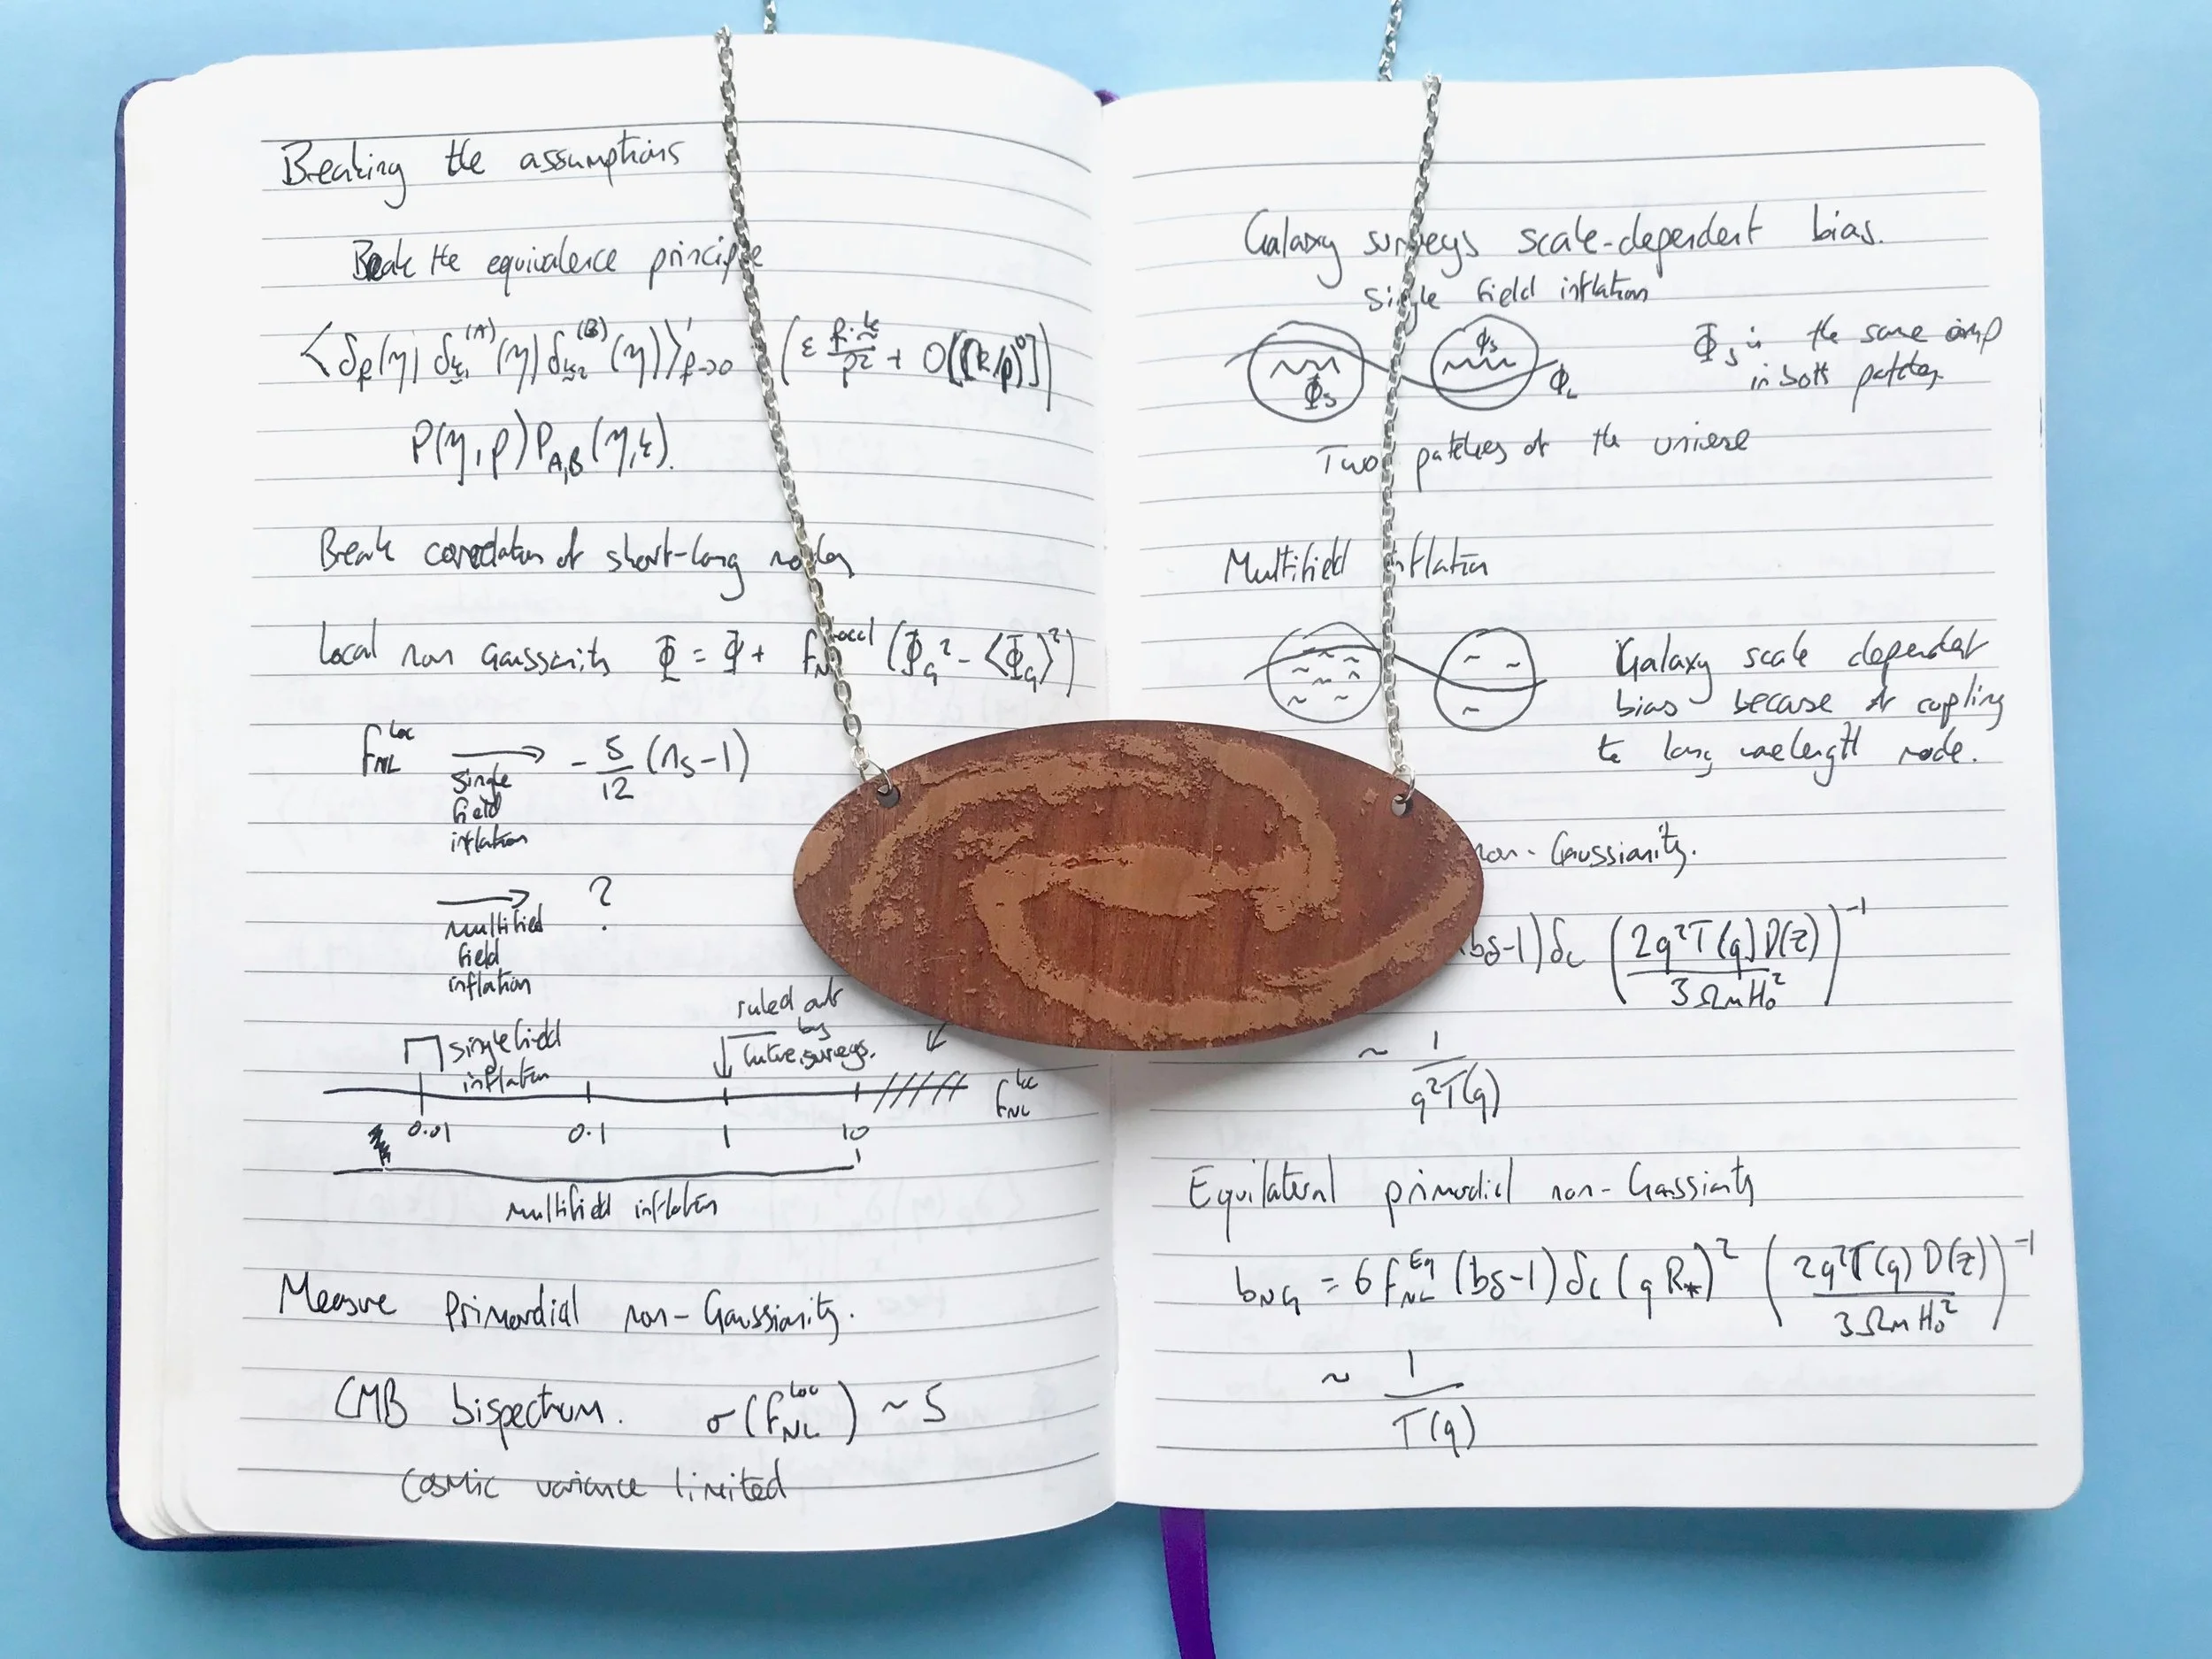 Breaking the assumptions
Break the equivalence principle
⟨δ_p(η) δ_k₁^(A)(η) δ_k₂^(B)(η)⟩'_p→0 (ε p·k/p² + O[(k/p)⁰])
P(η,p) P_A,B(η,k).
Break correlation of short-long modes
Local non Gaussianity Φ = Φ + f_NL^local (Φ_G² - ⟨Φ_G⟩²)
f_NL^loc → - 5/12 (n_s-1)
single
field
inflation
→ ?
multifield
field
inflation
ruled out
by
future surveys.
single field
inflation
f_NL^loc
0.01 0.1 1 10
multifield inflation
Measure Primordial non-Gaussianity.
CMB bispectrum. σ(f_NL^loc) ~ 5
Cosmic variance limited
Galaxy surveys scale-dependent bias.
Single field inflation
Φ_s Φ_s Φ_L
Φ_s is the same amp
in both patches.
Two patches of the universe
Multifield inflation
Galaxy scale dependent
bias because of coupling
to long wavelength mode.
non-Gaussianity.
(b_δ-1) δ_c (2q²T(q)D(z) / 3Ω_m H_0²)^-1
~ 1/q²T(q)
Equilateral primordial non-Gaussianity
b_NG = 6 f_NL^Eq (b_δ-1) δ_c (q R_*)² (2q²T(q)D(z) / 3Ω_m H_0²)^-1
~ 1/T(q)